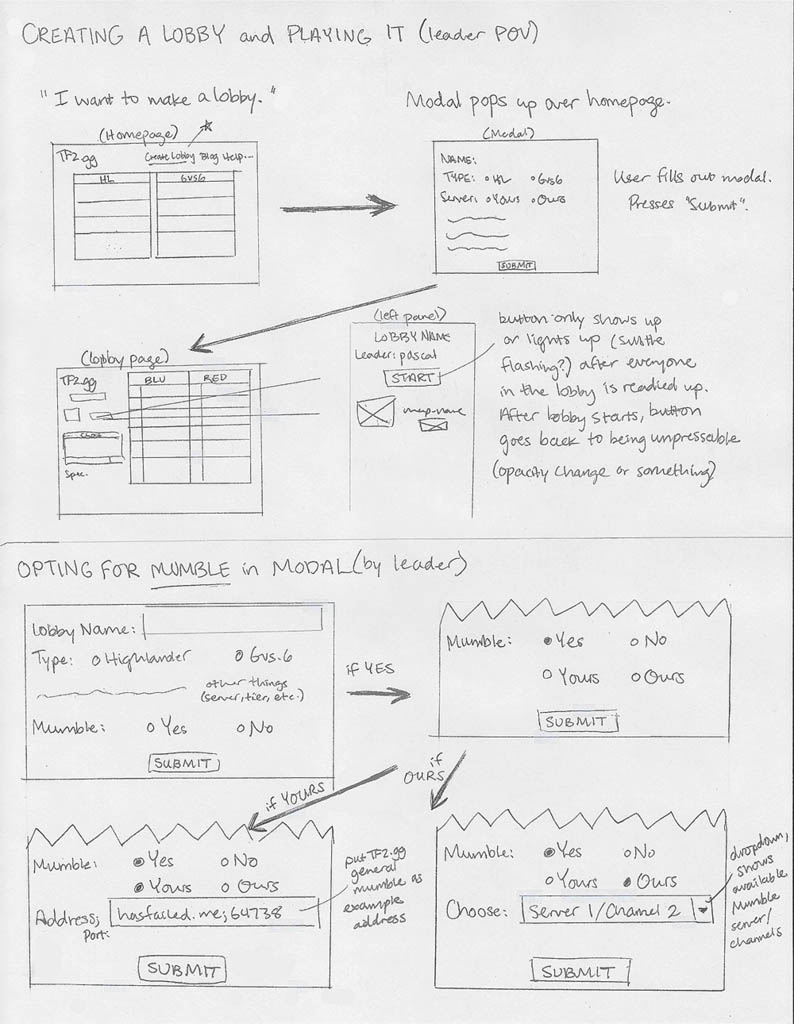 CREATING A LOBBY and PLAYING IT (leader POV)
"I want to make a lobby."
Modal pops up over homepage.
(Homepage)
TF2.gg
Create Lobby Blog Help...
HL
6vs6
(Modal)
NAME:
TYPE: HL 6vs6
Server: Yours Ours
SUBMIT
User fills out modal.
Presses "Submit".
(lobby page)
TF2.gg
BLU
RED
Spec.
(left panel)
LOBBY NAME
Leader: pascal
START
map-name
button only shows up
or lights up (subtle
flashing?) after everyone
in the lobby is readied up.
After lobby starts, button
goes back to being unpressable
(opacity change or something)
OPTING FOR MUMBLE in MODAL (by leader)
Lobby Name:
Type: Highlander 6vs.6
other things
(server, tier, etc.)
Mumble: Yes No
SUBMIT
if YES
Mumble: Yes No
Yours Ours
SUBMIT
if YOURS
if
OURS
Mumble: Yes No
Yours Ours
Address; hasfailed.me;64738
Port:
SUBMIT
put TF2.gg
general
mumble as
example
address
Mumble: Yes No
Yours Ours
Choose: Server 1/Channel 2
SUBMIT
dropdown,
shows
available
Mumble
server/
channels